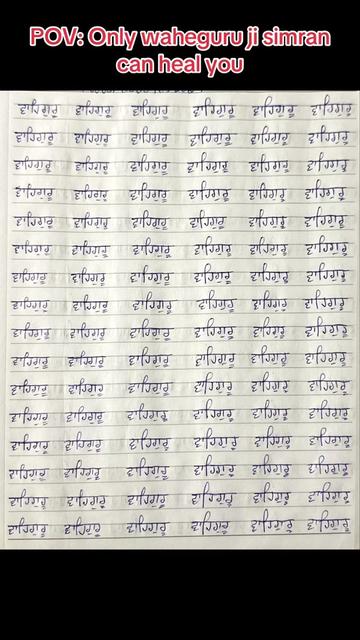 POV: Only waheguru ji simran
can heal you
ਵਾਹਿਗੁਰੂ ਵਾਹਿਗੁਰੂ ਵਾਹਿਗੁਰੂ ਵਾਹਿਗੁਰੂ ਵਾਹਿਗੁਰੂ ਵਾਹਿਗੁਰੂ
ਵਾਹਿਗੁਰੂ ਵਾਹਿਗੁਰੂ ਵਾਹਿਗੁਰੂ ਵਾਹਿਗੁਰੂ ਵਾਹਿਗੁਰੂ ਵਾਹਿਗੁਰੂ
ਵਾਹਿਗੁਰੂ ਵਾਹਿਗੁਰੂ ਵਾਹਿਗੁਰੂ ਵਾਹਿਗੁਰੂ ਵਾਹਿਗੁਰੂ ਵਾਹਿਗੁਰੂ
ਵਾਹਿਗੁਰੂ ਵਾਹਿਗੁਰੂ ਵਾਹਿਗੁਰੂ ਵਾਹਿਗੁਰੂ ਵਾਹਿਗੁਰੂ ਵਾਹਿਗੁਰੂ
ਵਾਹਿਗੁਰੂ ਵਾਹਿਗੁਰੂ ਵਾਹਿਗੁਰੂ ਵਾਹਿਗੁਰੂ ਵਾਹਿਗੁਰੂ ਵਾਹਿਗੁਰੂ
ਵਾਹਿਗੁਰੂ ਵਾਹਿਗੁਰੂ ਵਾਹਿਗੁਰੂ ਵਾਹਿਗੁਰੂ ਵਾਹਿਗੁਰੂ ਵਾਹਿਗੁਰੂ
ਵਾਹਿਗੁਰੂ ਵਾਹਿਗੁਰੂ ਵਾਹਿਗੁਰੂ ਵਾਹਿਗੁਰੂ ਵਾਹਿਗੁਰੂ ਵਾਹਿਗੁਰੂ
ਵਾਹਿਗੁਰੂ ਵਾਹਿਗੁਰੂ ਵਾਹਿਗੁਰੂ ਵਾਹਿਗੁਰੂ ਵਾਹਿਗੁਰੂ ਵਾਹਿਗੁਰੂ
ਵਾਹਿਗੁਰੂ ਵਾਹਿਗੁਰੂ ਵਾਹਿਗੁਰੂ ਵਾਹਿਗੁਰੂ ਵਾਹਿਗੁਰੂ ਵਾਹਿਗੁਰੂ
ਵਾਹਿਗੁਰੂ ਵਾਹਿਗੁਰੂ ਵਾਹਿਗੁਰੂ ਵਾਹਿਗੁਰੂ ਵਾਹਿਗੁਰੂ ਵਾਹਿਗੁਰੂ
ਵਾਹਿਗੁਰੂ ਵਾਹਿਗੁਰੂ ਵਾਹਿਗੁਰੂ ਵਾਹਿਗੁਰੂ ਵਾਹਿਗੁਰੂ ਵਾਹਿਗੁਰੂ
ਵਾਹਿਗੁਰੂ ਵਾਹਿਗੁਰੂ ਵਾਹਿਗੁਰੂ ਵਾਹਿਗੁਰੂ ਵਾਹਿਗੁਰੂ ਵਾਹਿਗੁਰੂ
ਵਾਹਿਗੁਰੂ ਵਾਹਿਗੁਰੂ ਵਾਹਿਗੁਰੂ ਵਾਹਿਗੁਰੂ ਵਾਹਿਗੁਰੂ ਵਾਹਿਗੁਰੂ
ਵਾਹਿਗੁਰੂ ਵਾਹਿਗੁਰੂ ਵਾਹਿਗੁਰੂ ਵਾਹਿਗੁਰੂ ਵਾਹਿਗੁਰੂ ਵਾਹਿਗੁਰੂ
ਵਾਹਿਗੁਰੂ ਵਾਹਿਗੁਰੂ ਵਾਹਿਗੁਰੂ ਵਾਹਿਗੁਰੂ ਵਾਹਿਗੁਰੂ ਵਾਹਿਗੁਰੂ
ਵਾਹਿਗੁਰੂ ਵਾਹਿਗੁਰੂ ਵਾਹਿਗੁਰੂ ਵਾਹਿਗੁਰੂ ਵਾਹਿਗੁਰੂ ਵਾਹਿਗੁਰੂ